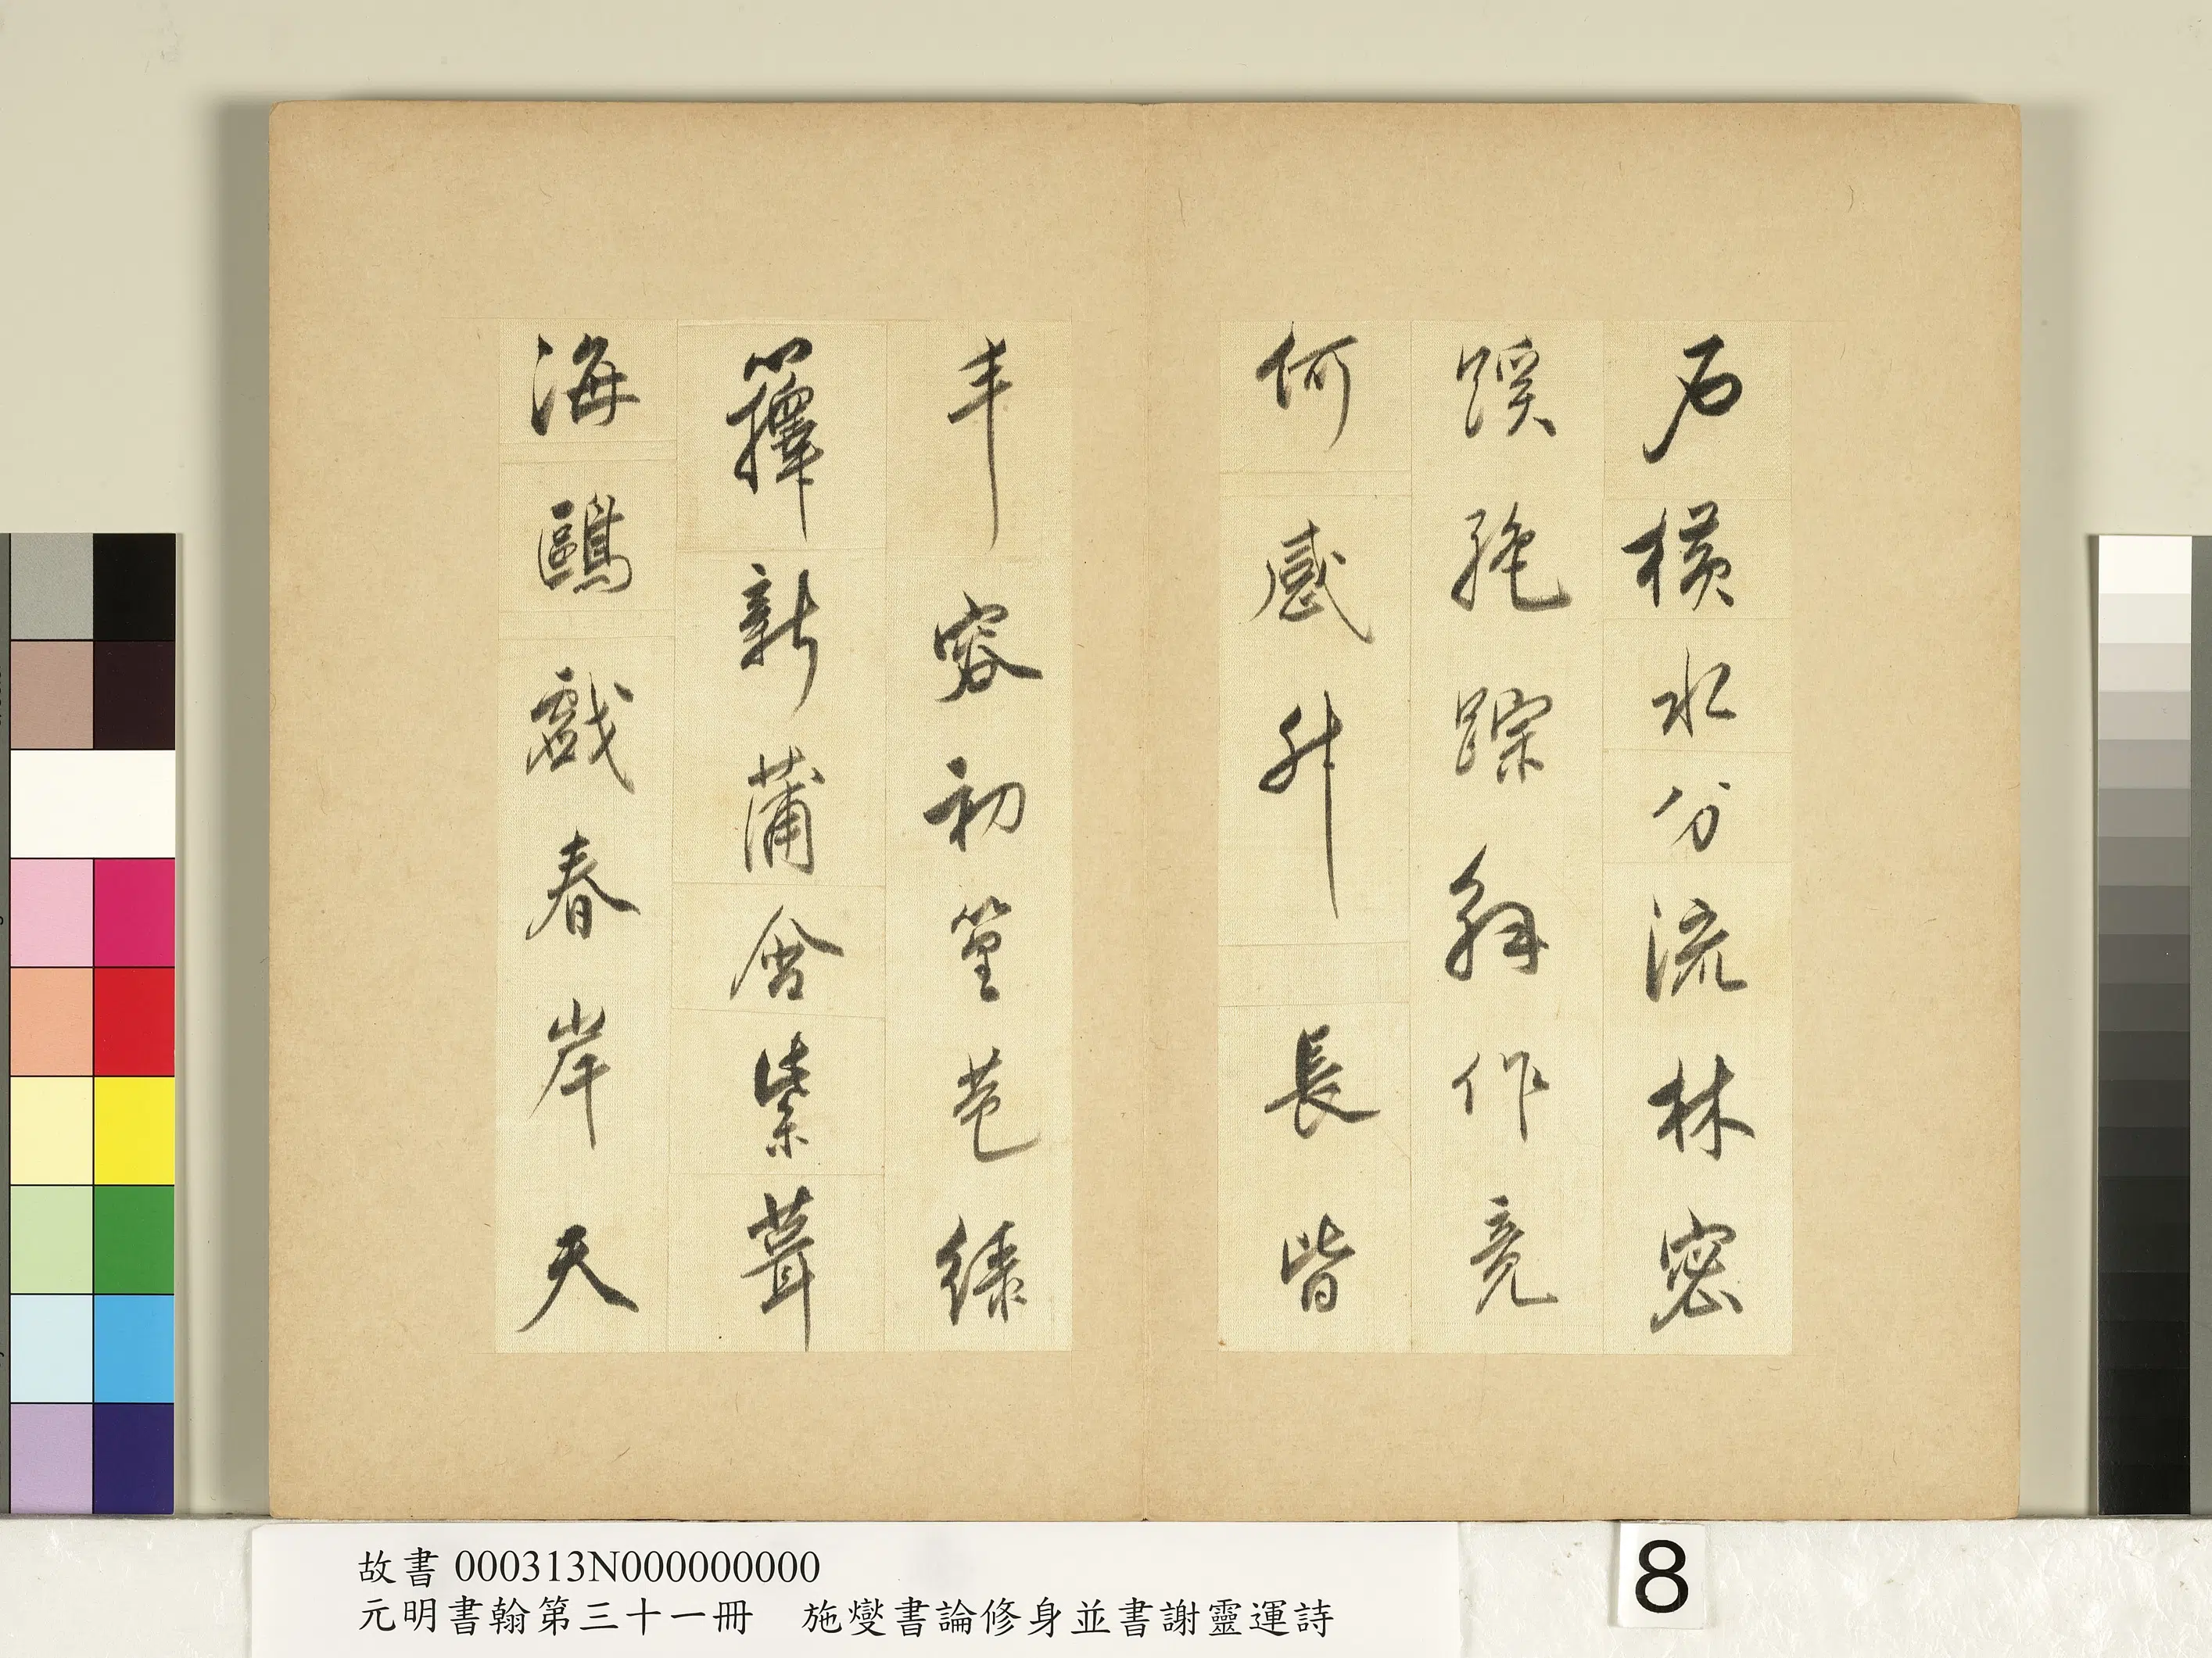 石橫水分流林密
蹊絕踪解作竟
何感升長皆
丰容初篁苞綠
籜新蒲含紫茸
海鷗戲春岸天
故書 000313N000000000
元明書翰第三十一冊 施燮書論修身並書謝靈運詩
8